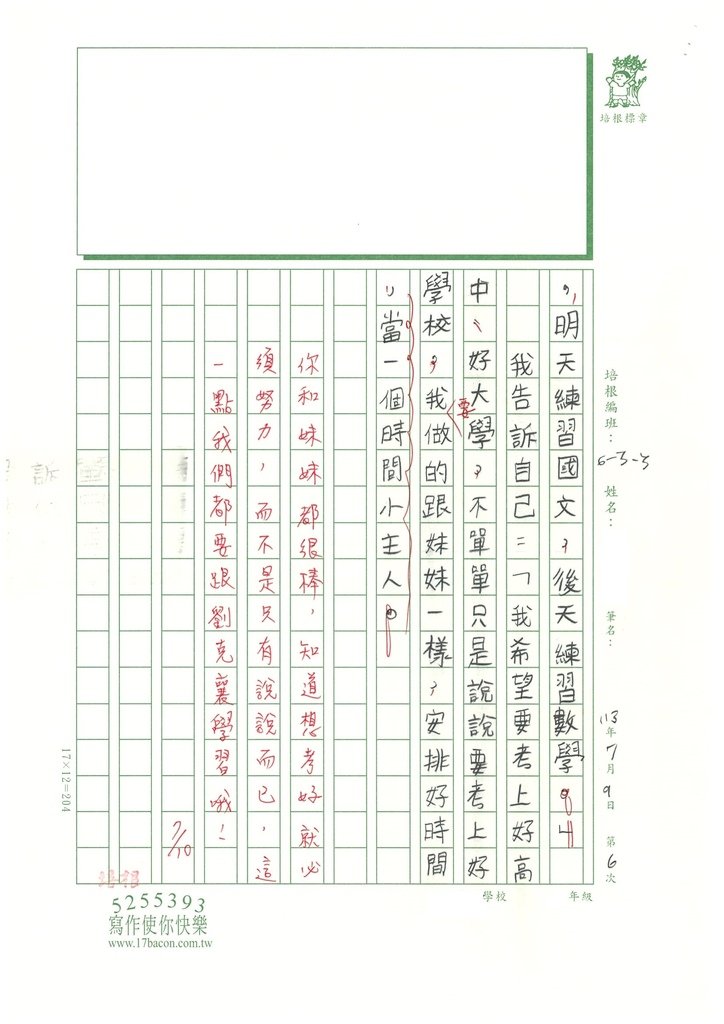 培根標章
培根編班：6-3-3 姓名： 筆名： 113年7月9日 第6次
，明天練習國文，後天練習數學。」
我告訴自己：「我希望要考上好高
中、好大學，不單單只是說說要考上好
學校，我要做的跟妹妹一樣，安排好時間
，當一個時間小主人。
你和妹妹都很棒，知道想考好就必
須努力，而不是只有說說而已，這
一點我們都要跟劉克襄學習哦！
7/10
17×12=204
學校 年級
培根
5255393
寫作使你快樂
www.17bacon.com.tw